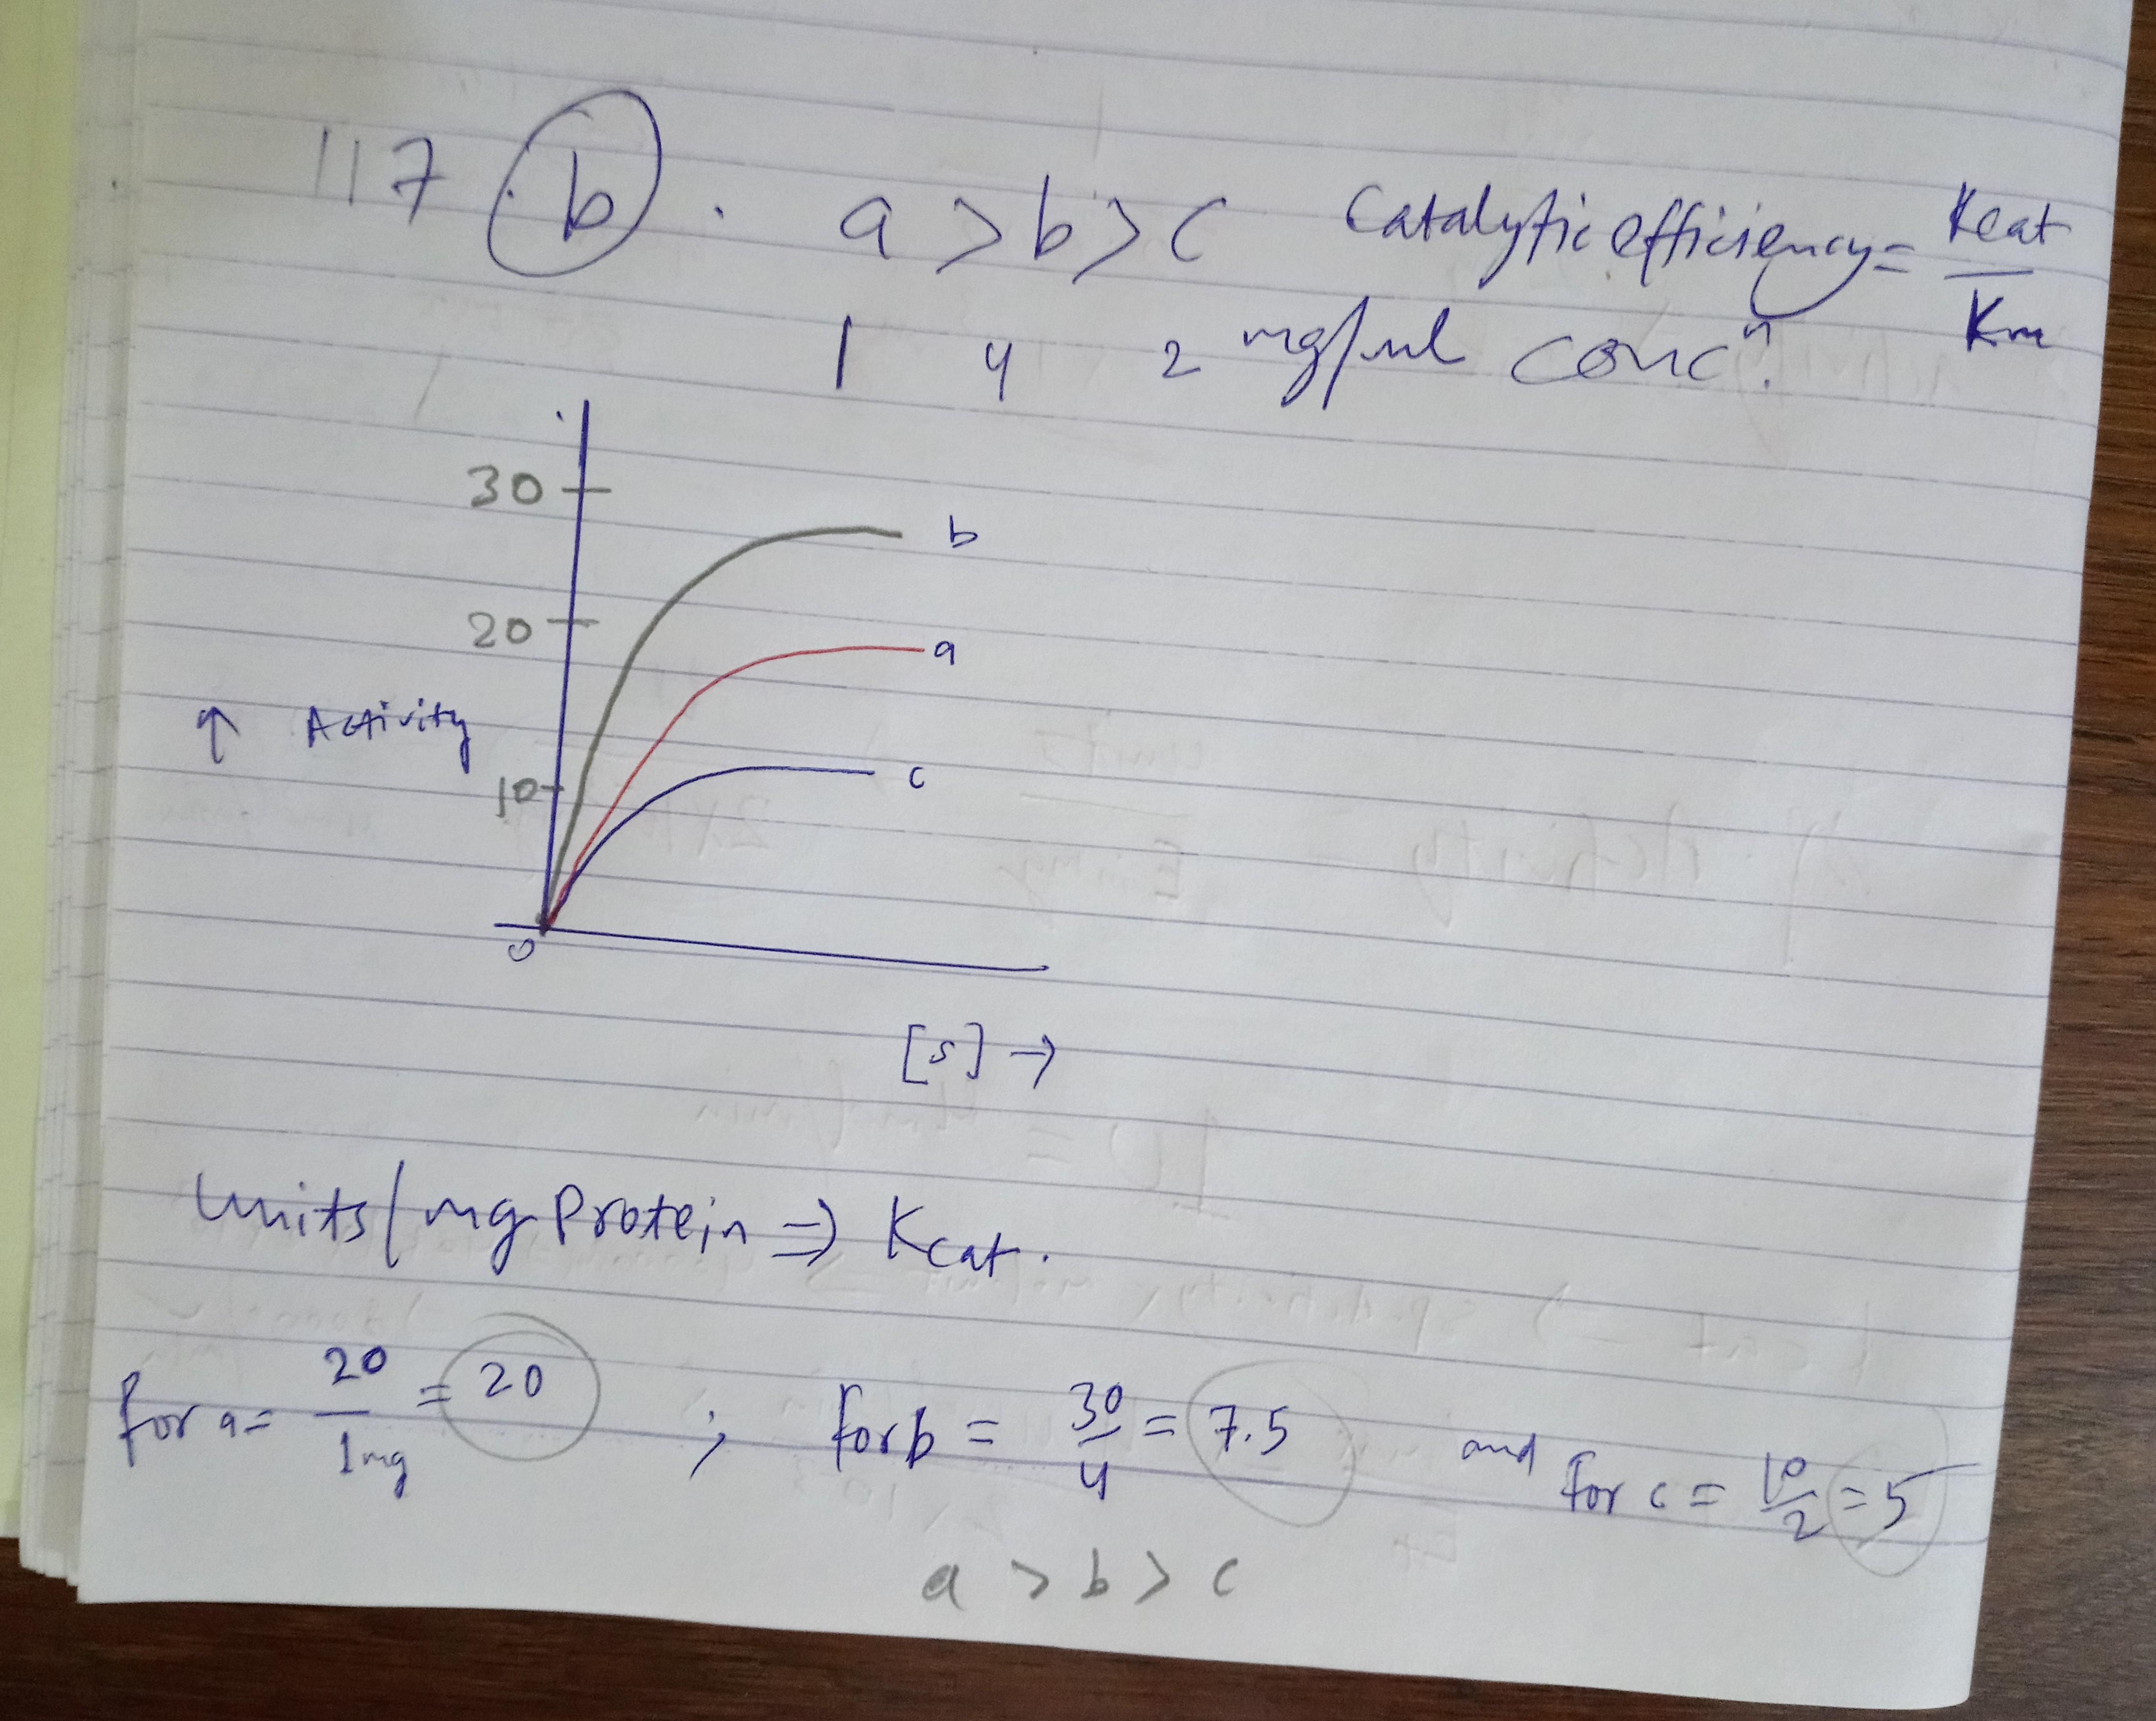 117 b. a > b > c Catalytic efficiency = Kcat / Km
1 4 2 mg/ml concⁿ.
30
b
20
a
↑ Activity
10
c
0
[s] →
Units/mg Protein ⇒ Kcat.
for a = 20/1mg = 20 ; for b = 30/4 = 7.5 and for c = 10/2 = 5
a > b > c